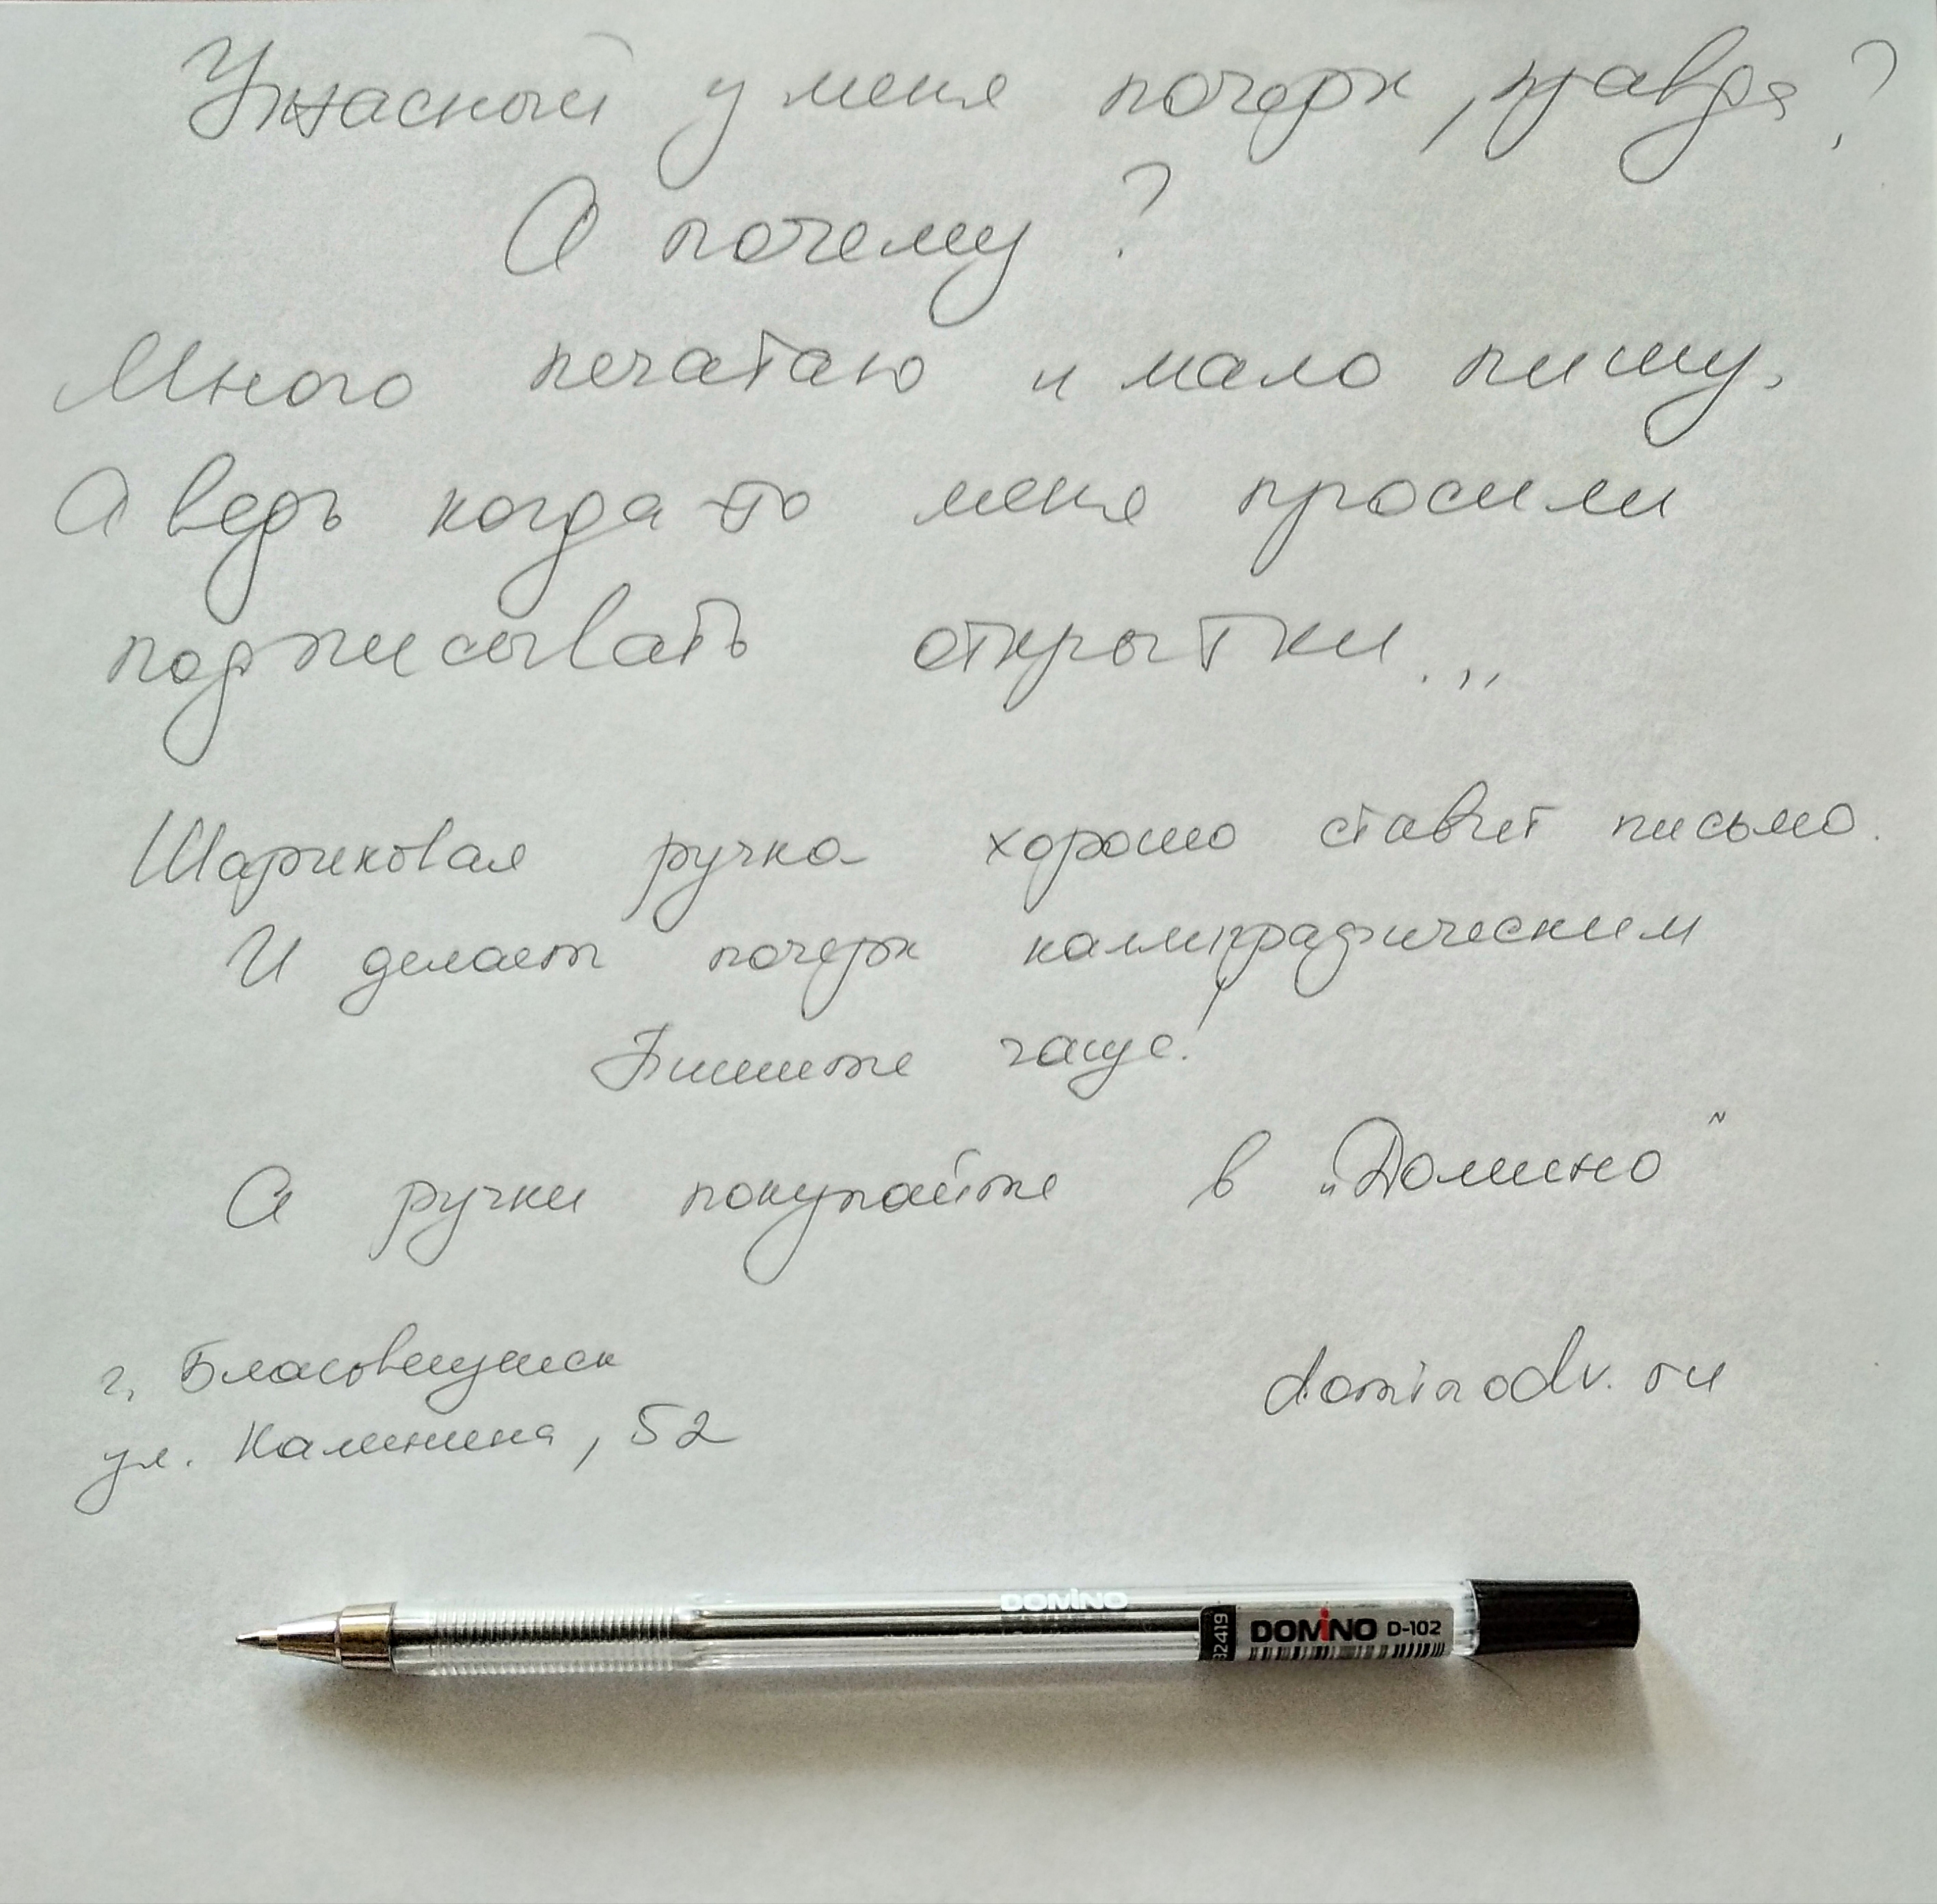 Ужасный у меня почерк, правда?
А почему?
Много печатаю и мало пишу.
А ведь когда-то меня просили
подписывать открытки...
Шариковая ручка хорошо ставит письмо.
И делает почерк каллиграфическим
Пишите чаще!
А ручки покупайте в "Домино"
г. Благовещенск
ул. Калинина, 52
dominodv.ru
DOMiNO
32419
DOMiNO D-102